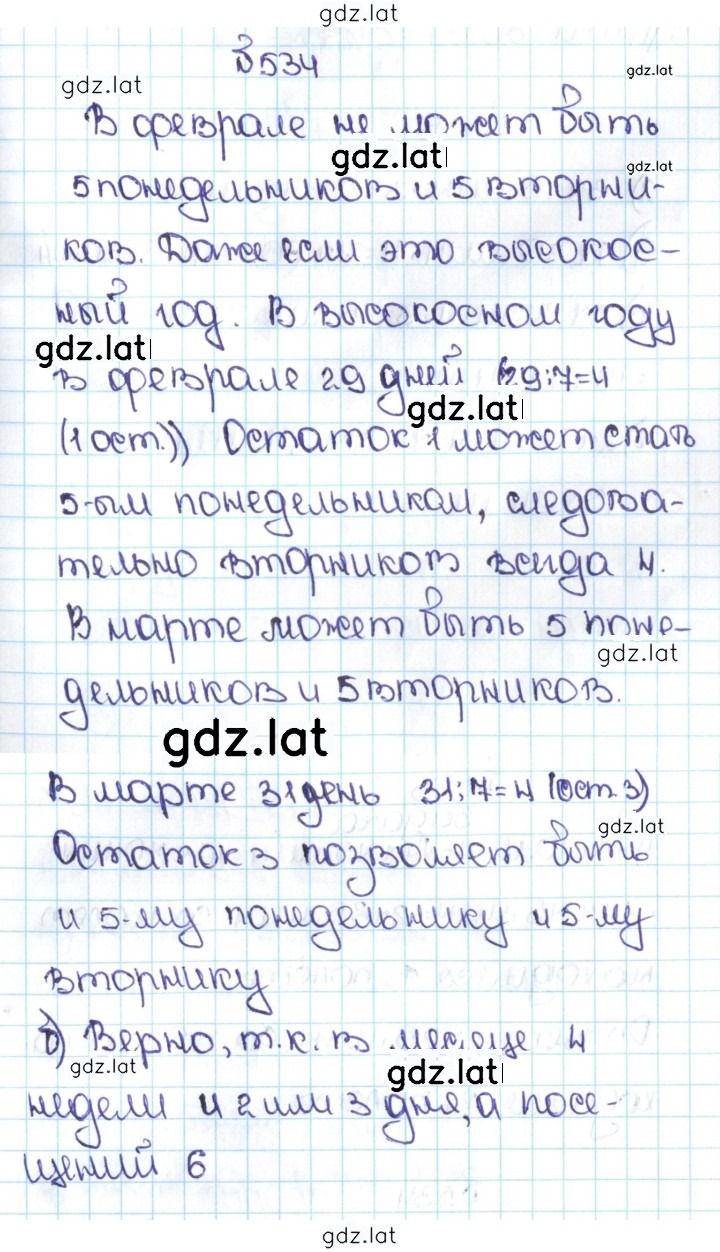 gdz.lat
№534
gdz.lat
gdz.lat
В феврале не может быть
gdz.lat
gdz.lat
5 понедельников и 5 вторни-
ков. Даже если это высокос-
ный год. В высокосном году
gdz.lat
в феврале 29 дней (29:7=4
gdz.lat
(1 ост.)) Остаток 1 может стать
5-ым понедельникам, следова-
тельно вторников всегда 4.
В марте может быть 5 поне-
gdz.lat
дельников и 5 вторников.
gdz.lat
В марте 31 день 31:7=4 (ост. 3)
gdz.lat
Остаток 3 позволяет быть
и 5-му понедельнику и 5-му
вторнику
б) Верно, т.к. в месяце 4
gdz.lat
gdz.lat
недели и 2 или 3 дня, а посе-
щений 6
gdz.lat